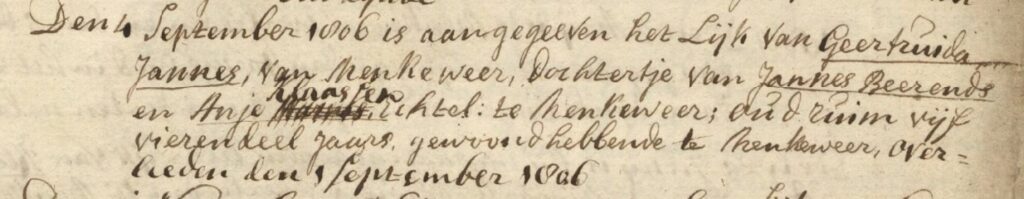 Den 4 September 1806 is aangegeeven het Lijk van Geertruida
Jannes, van Menkeweer, dochtertje van Jannes Beerends
en Anje Klaassen Echtel: te Menkeweer; oud ruim vijf
vierendeel jaars, gewoond hebbende te Menkeweer, over=
lieden den 1 September 1806